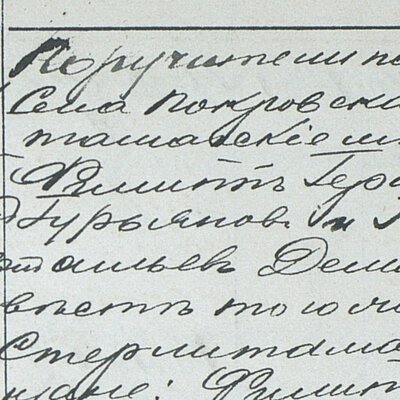 Поручители по
Села Покровска
ташайскіе м
Филиппъ Гера
Гурьяновъ и
тальевъ Деми
вѣстѣ того же
Стерлитама
жане: Филип